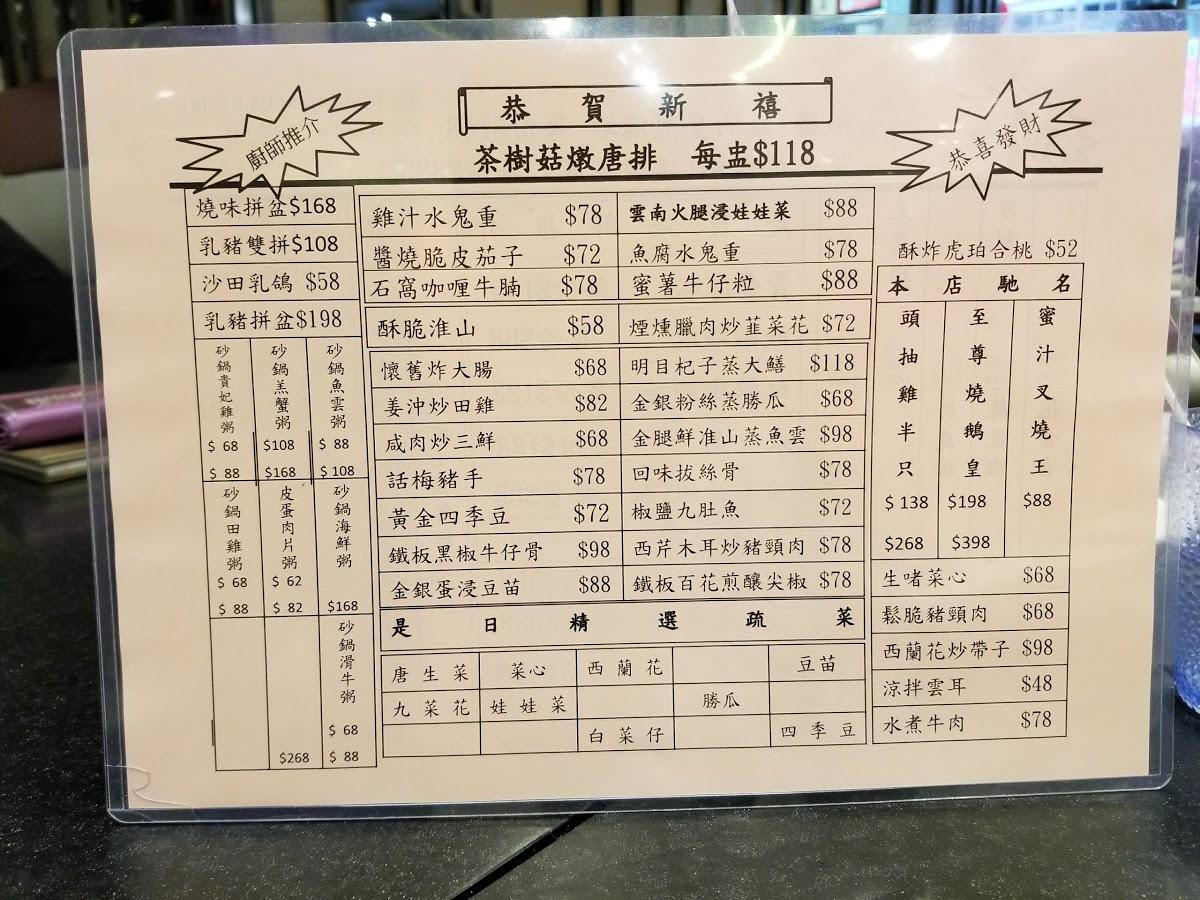 恭賀新禧
廚師推介
恭喜發財
茶樹菇燉唐排 每盅$118
燒味拼盆$168
乳豬雙拼$108
沙田乳鴿 $58
乳豬拼盆$198
砂鍋貴妃雞粥 $ 68 $ 88
砂鍋羔蟹粥 $108 $168
砂鍋魚雲粥 $ 88 $ 108
砂鍋田雞粥 $ 68 $ 88
皮蛋肉片粥 $ 62 $ 82
砂鍋海鮮粥 $168
$268
砂鍋滑牛粥 $ 68 $ 88
雞汁水鬼重 $78
雲南火腿浸娃娃菜 $88
醬燒脆皮茄子 $72
魚腐水鬼重 $78
石窩咖喱牛腩 $78
蜜薯牛仔粒 $88
酥脆淮山 $58
煙燻臘肉炒韮菜花 $72
懷舊炸大腸 $68
明目杞子蒸大鱔 $118
姜沖炒田雞 $82
金銀粉絲蒸勝瓜 $68
咸肉炒三鮮 $68
金腿鮮淮山蒸魚雲 $98
話梅豬手 $78
回味拔絲骨 $78
黃金四季豆 $72
椒鹽九肚魚 $72
鐵板黑椒牛仔骨 $98
西芹木耳炒豬頸肉 $78
金銀蛋浸豆苗 $88
鐵板百花煎釀尖椒 $78
是日精選疏菜
唐生菜 菜心 西蘭花 豆苗
九菜花 娃娃菜 勝瓜
白菜仔 四季豆
酥炸虎珀合桃 $52
本店馳名
頭抽雞半只 $ 138 $268
至尊燒鵝皇 $198 $398
蜜汁叉燒王 $88
生啫菜心 $68
鬆脆豬頸肉 $68
西蘭花炒帶子 $98
涼拌雲耳 $48
水煮牛肉 $78